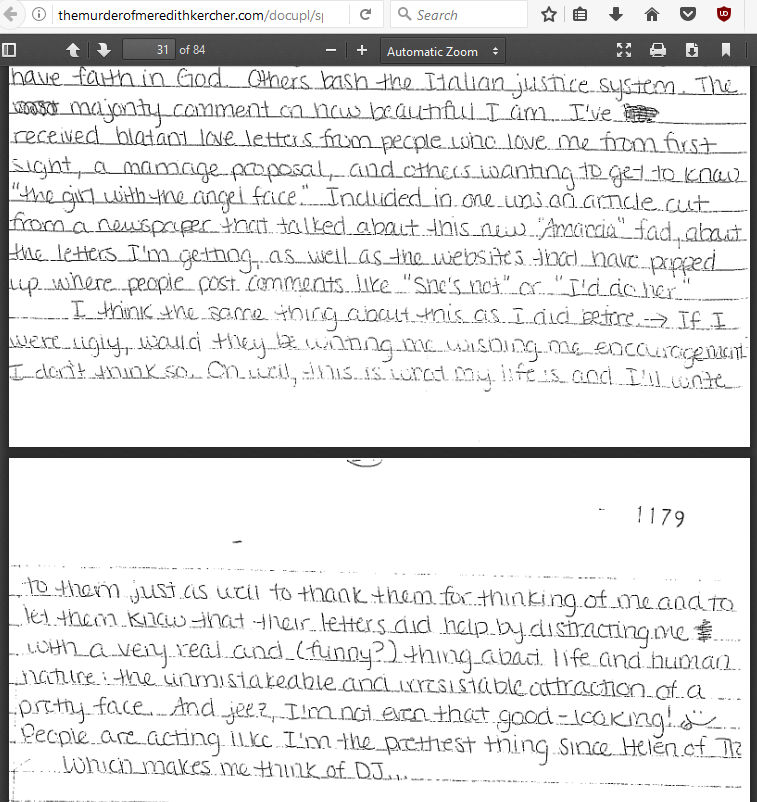 themurderofmeredithkercher.com/docupl/sp
Search
31 of 84
Automatic Zoom
have faith in God. Others bash the Italian justice system. The
majority comment on how beautiful I am. I've
received blatant love letters from people who love me from first
sight, a marriage proposal, and others wanting to get to know
"the girl with the angel face." Included in one was an article cut
from a newspaper that talked about this new "Amanda" fad, about
the letters I'm getting, as well as the websites that have popped
up where people post comments like "She's hot" or "I'd do her."
I think the same thing about this as I did before → If I
were ugly, would they be writing me wishing me encouragement
I don't think so. Oh well, this is what my life is and I'll write
1179
to them just as well to thank them for thinking of me and to
let them know that their letters did help by distracting me
with a very real and (funny?) thing about life and human
nature: the unmistakeable and irresistable attraction of a
pretty face. And jeez, I'm not even that good-looking!
People are acting like I'm the prettiest thing since Helen of
Which makes me think of DJ...